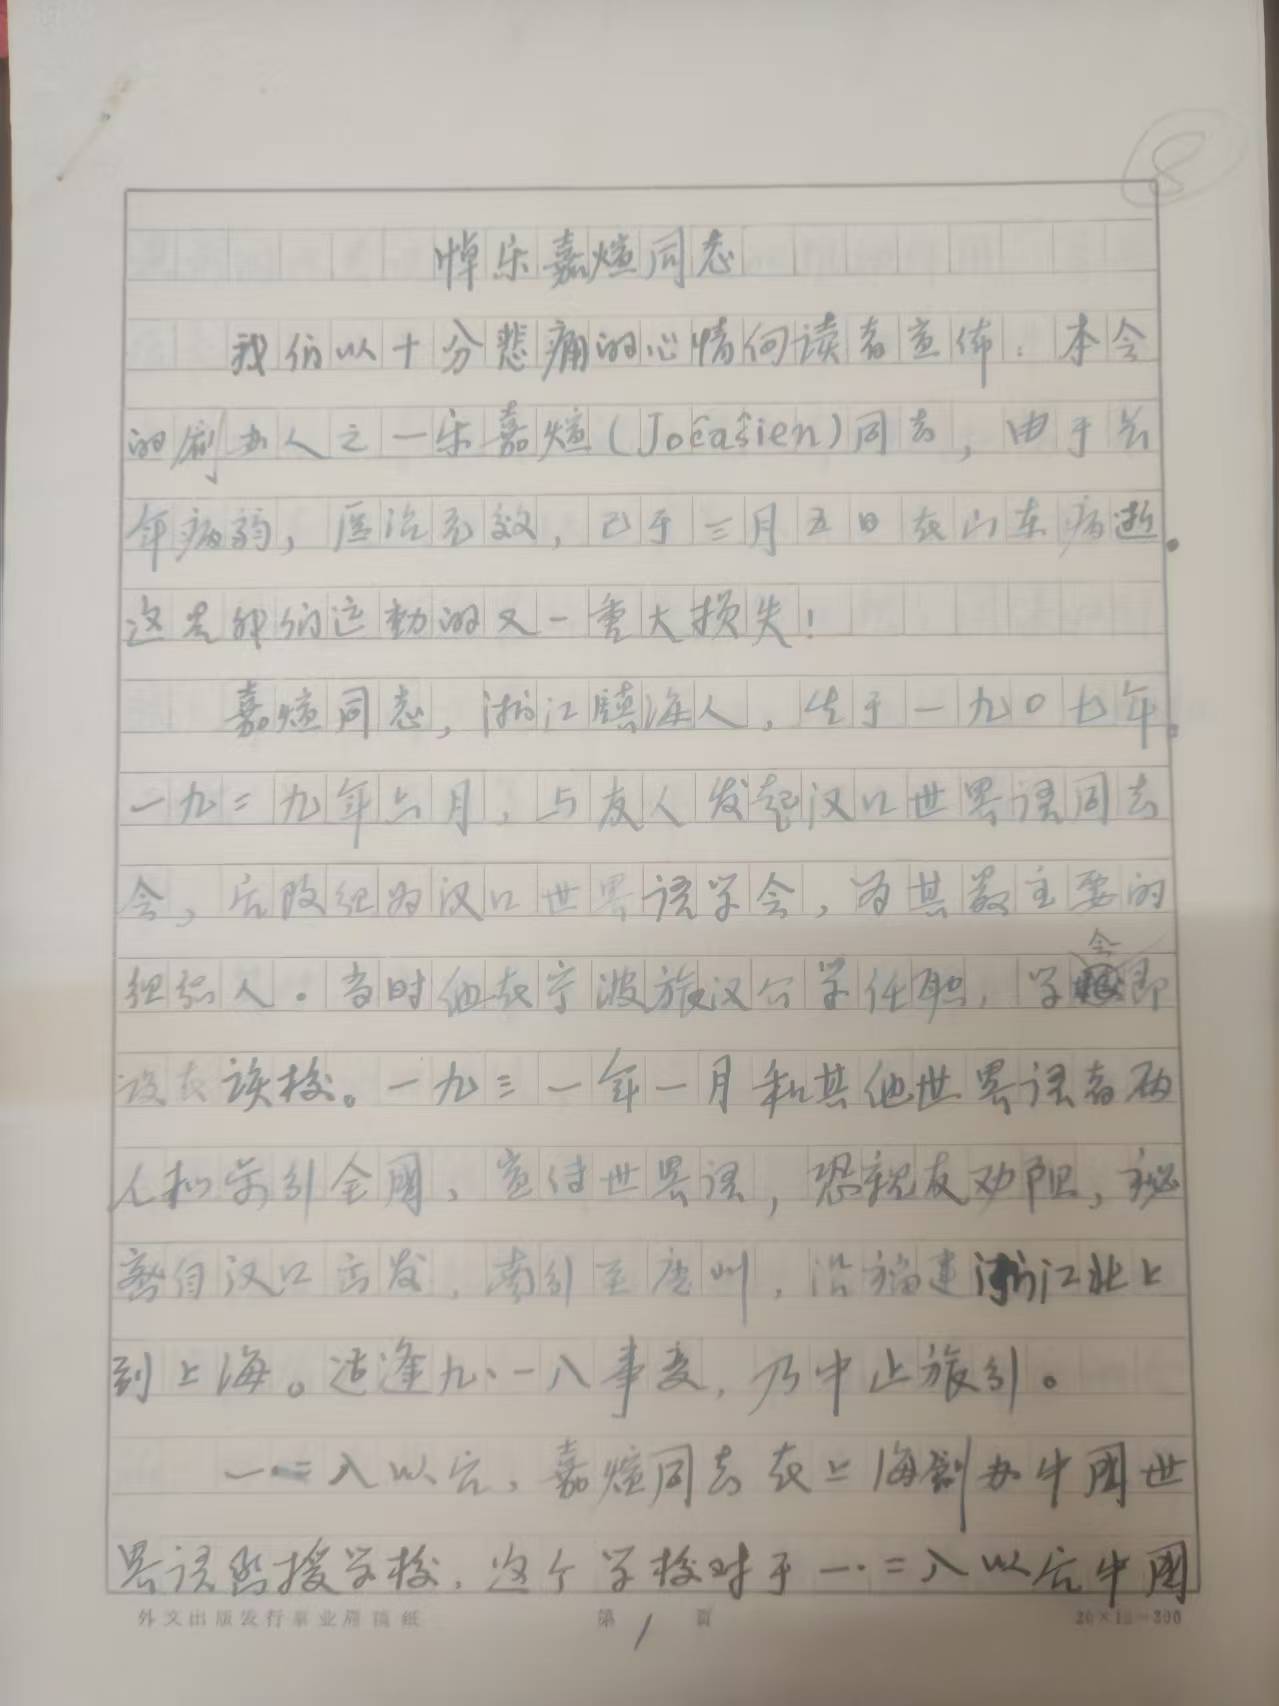 8
悼乐嘉煊同志
我们以十分悲痛的心情向读者宣佈：本会
的创办人之一乐嘉煊(Jocaŝien)同志，由于长
年病弱，医治无效，已于三月五日在山东病逝。
这是我们运动的又一重大损失！
嘉煊同志，浙江镇海人，生于一九〇七年。
一九二九年六月，与友人发起汉口世界语同志
会，后改组为汉口世界语学会，为其最主要的
组织人。当时他在宁波旅汉公学任职，学会即
设在该校。一九三一年一月和其他世界语者两
人拟旅行全國，宣传世界语，恐親友劝阻，秘
密自汉口出发，南行至广州，沿福建浙江北上
到上海。适逢九·一八事变，乃中止旅行。
一·二八以后，嘉煊同志在上海創办中國世
界语函授学校，这个学校对于一·二八以后中國
外文出版发行事业局稿纸 第1頁 20×15=300